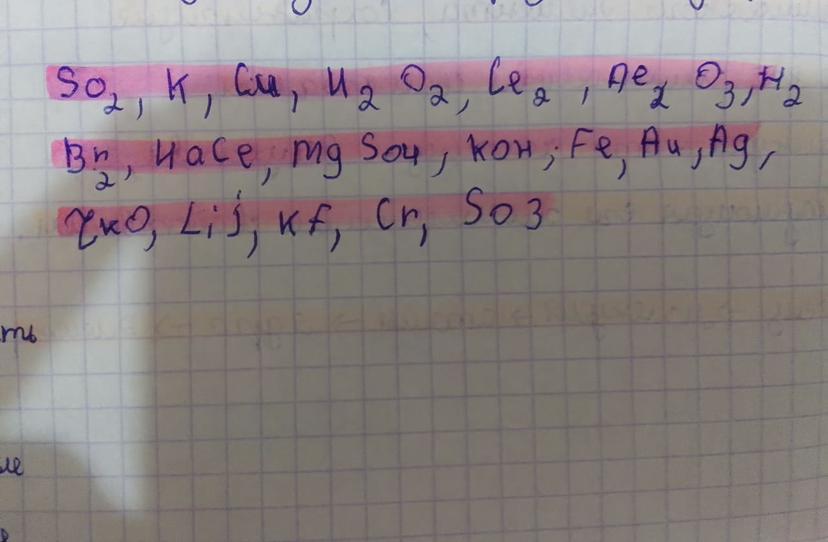 SO2, K, Cu, H2O2, Cl2, Al2O3, H2
Br2, NaCl, MgSO4, KOH, Fe, Au, Ag,
ZnO, Lij, Kf, Cr, SO3
ть
ле